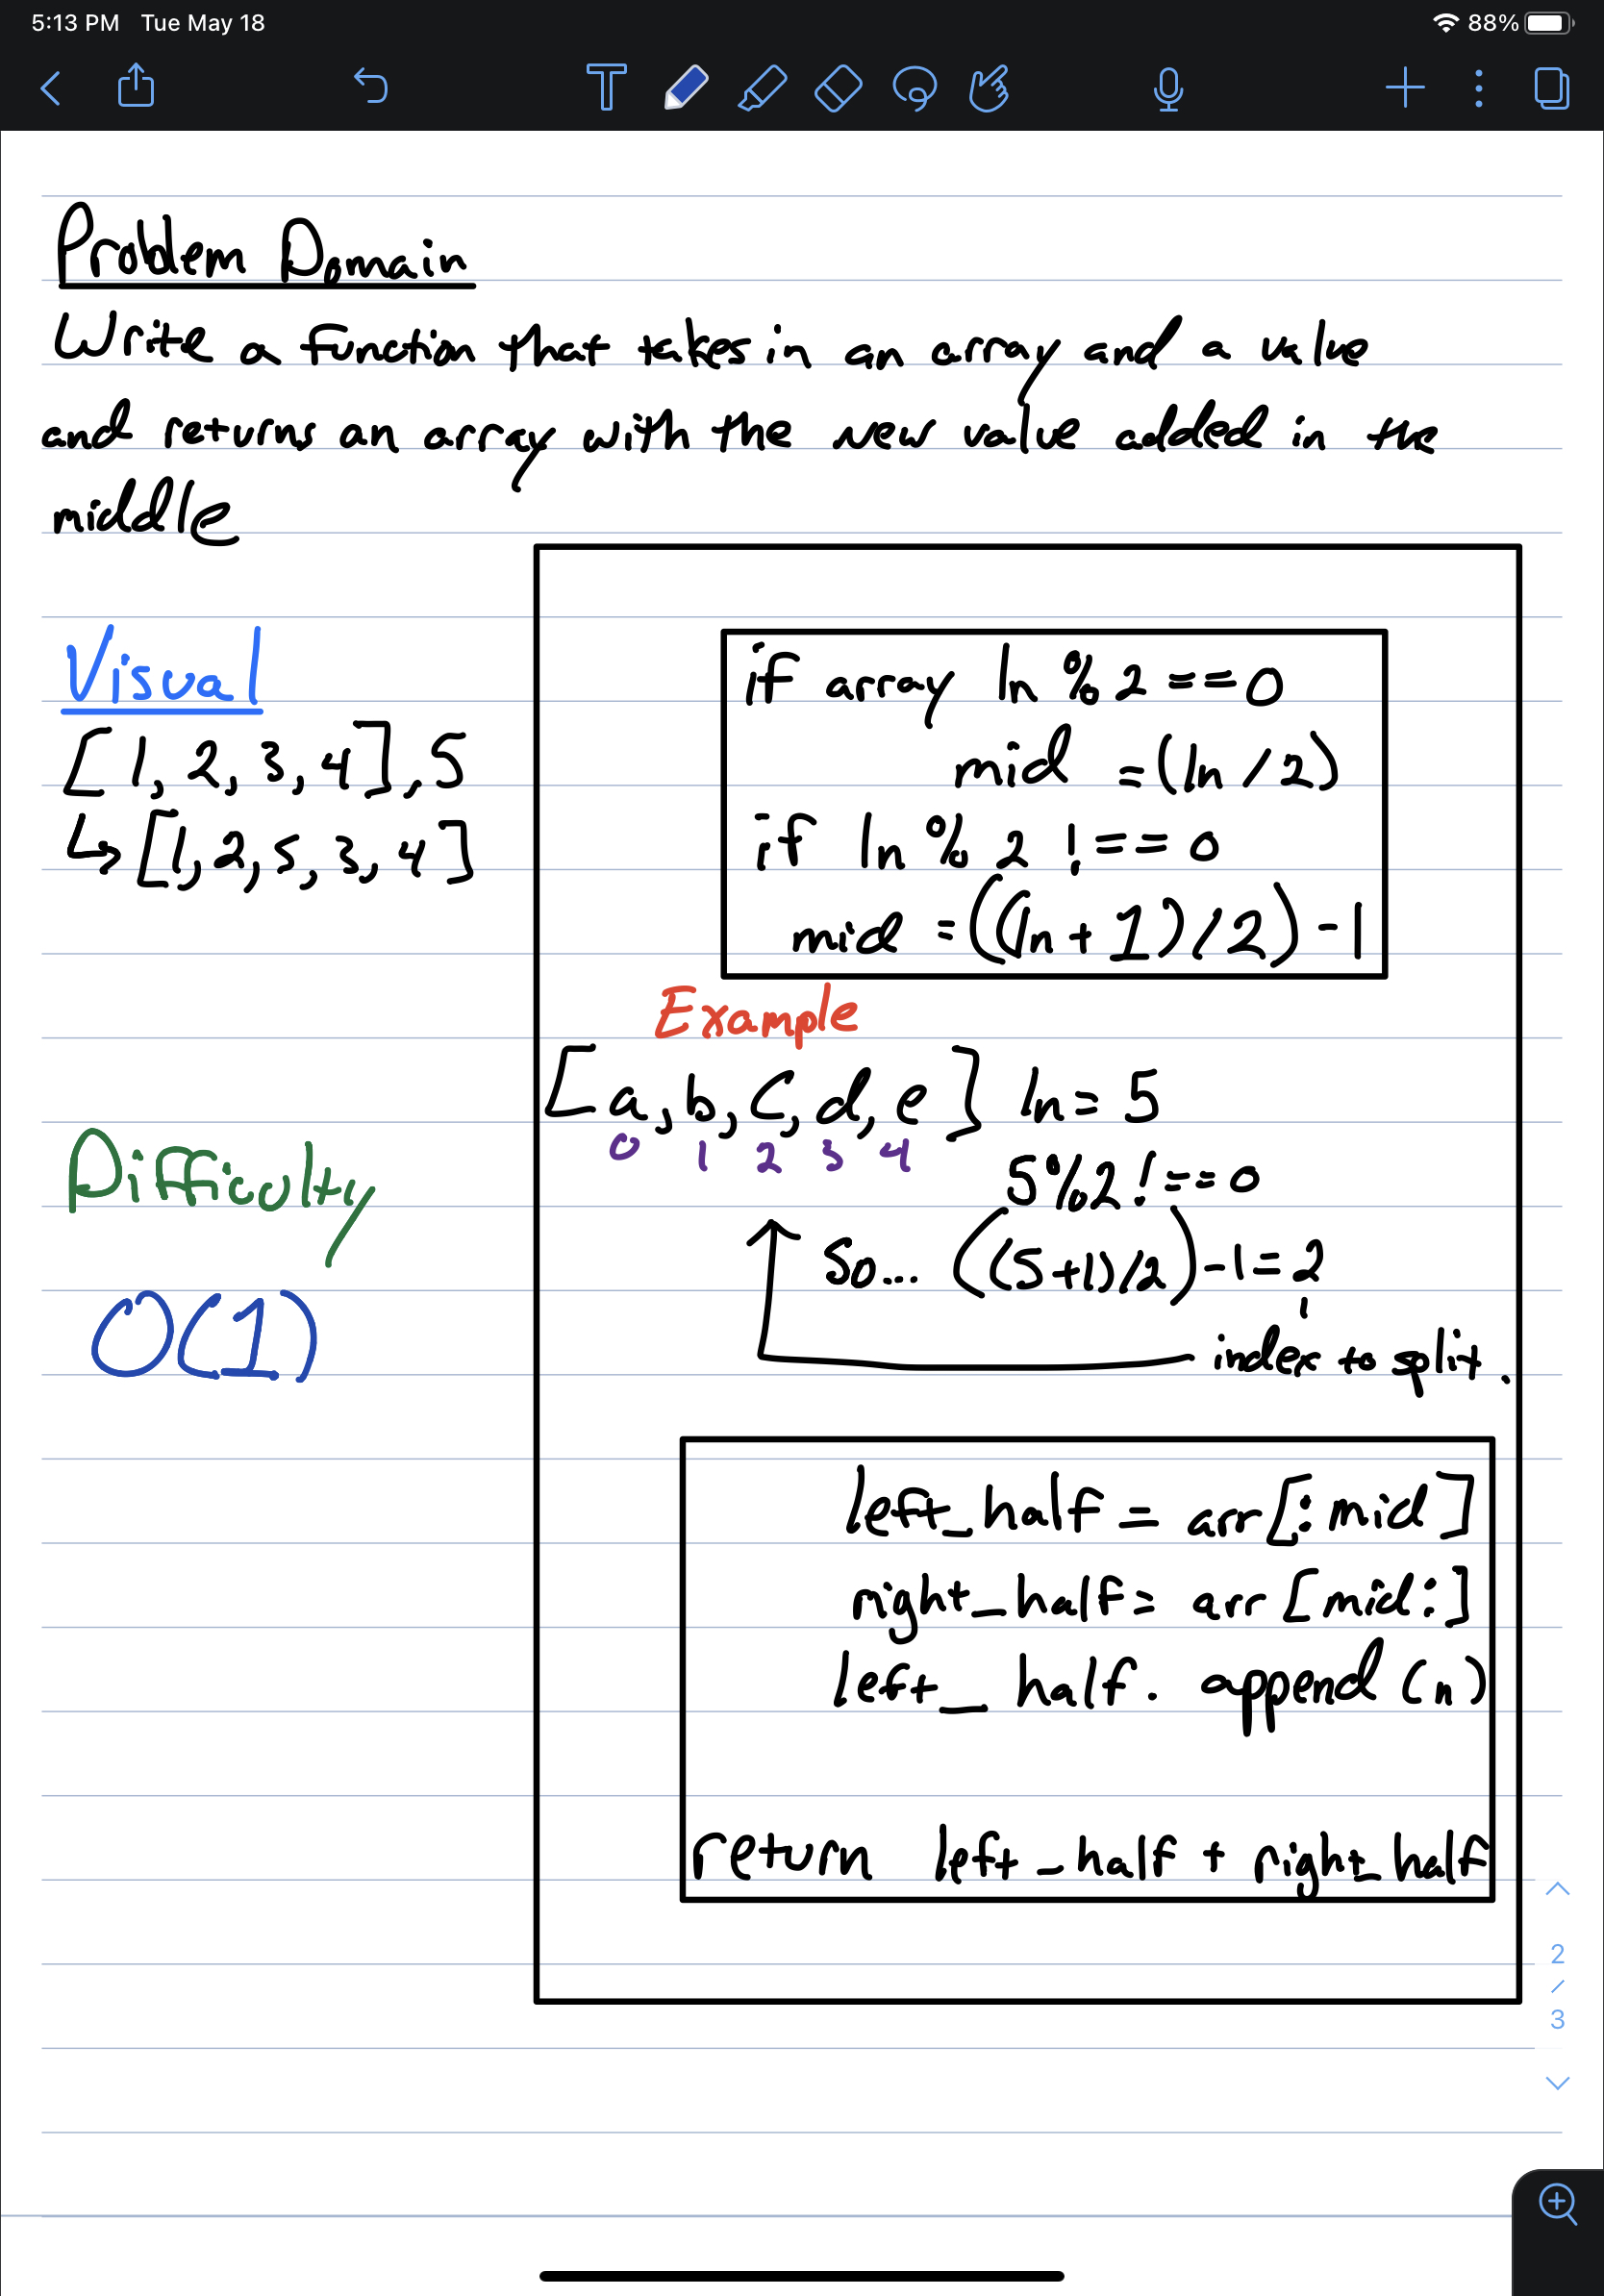 5:13 PM Tue May 18
88%
Problem Domain
Write a function that takes in an array and a value
and returns an array with the new value added in the
middle
Visual
[1, 2, 3, 4], 5
↳ [1, 2, 5, 3, 4]
Difficulty
O(1)
if array ln % 2 === 0
mid = (ln / 2)
if ln % 2 !=== 0
mid = ((ln + 1) / 2) - 1
Example
[a, b, c, d, e] ln = 5
0 1 2 3 4
5%2 !== 0
So... ((5+1)/2) - 1 = 2
index to split.
left_half = arr[:mid]
right_half = arr[mid:]
left_half. append (n)
return left_half + right_half
2
/
3